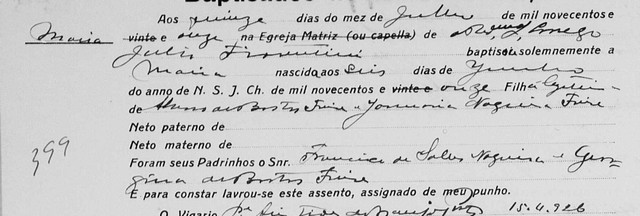 Aos quinze dias do mez de Julho de mil novecentos e
Maria vinte e onze na Egreja Matriz (ou capella) de
Julio Fiorentini baptisou solemnemente a
Maria nascido aos seis dias de Junho
do anno de N. S. J. Ch. de mil novecentos e vinte e onze Filha legitima
de de Bastos Freire e Nogueira Freire
Neto paterno de
399
Neto materno de
Foram seus Padrinhos o Snr. Francisco de Salles Nogueira e Geor
gina de Bastos Freire
E para constar lavrou-se este assento, assignado de meu punho.
O Vigario 15.4.926